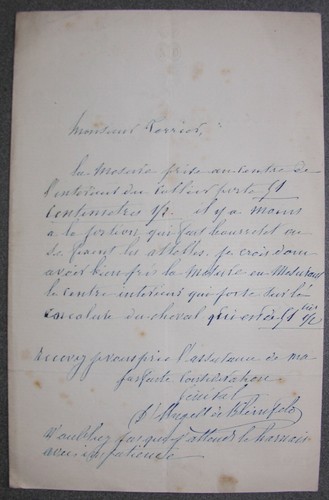 Monsieur Perrier,
la mesure prise au centre de
l'interieur du Collier porte 51
centimetres 1/2. il y a moins
a la portion qui fait bourrelet ou
se fixent les attelles. je crois donc
avoir bien pris la mesure en mesurant
le centre interieur qui porte sur l'é
encolure du cheval qui est de 51 1/2
recevez je vous prie l'assurance de ma
parfaite consideration
General
n'oubliez pas que j'attends le harnais
avec impatience